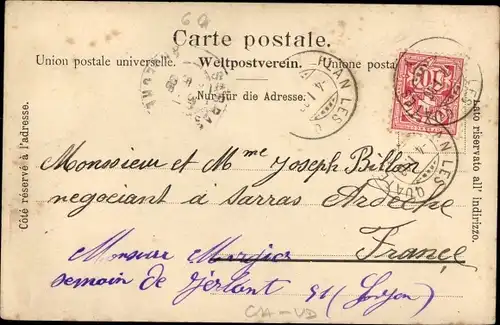 Carte postale.
Union postale universelle. Weltpostverein. Unione posta
Nur für die Adresse.
Côté réservé à l'adresse.
Lato riservato all' indirizzo.
Monsieur et Mme Joseph Billon
negociant à Sarras Ardèche
France
Monsieur
semoin de 91 (Loyon)
CIA-VD